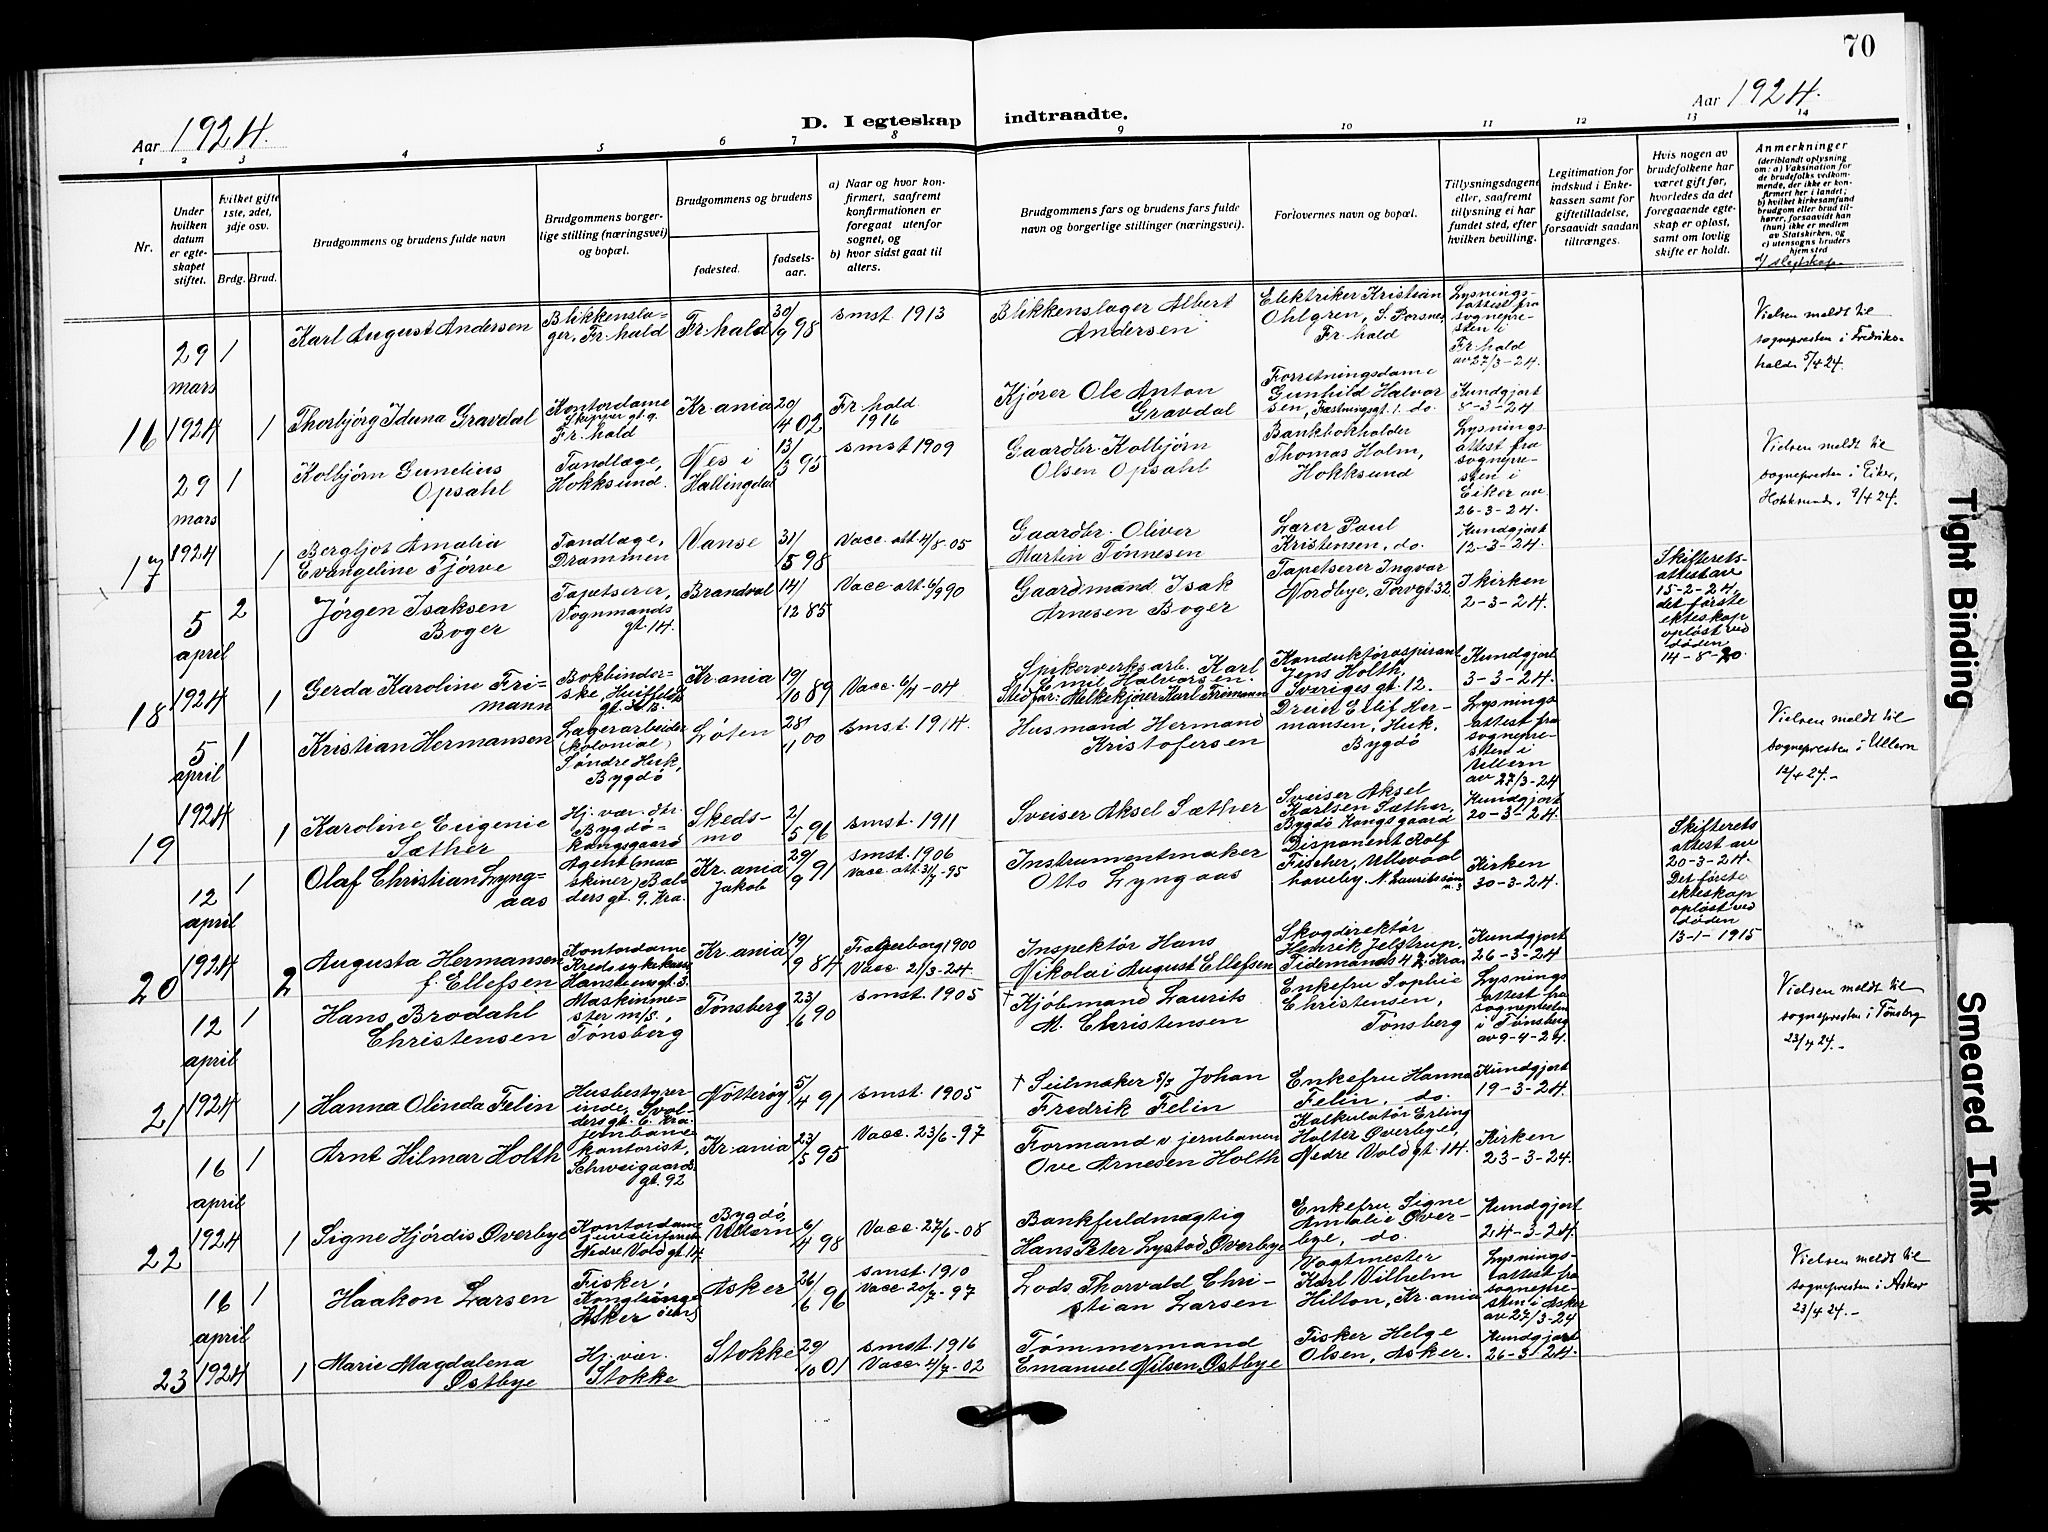 70
Aar 1924.
D. I egteskap indtraadte.
Aar 1924.
1 2 3 4 5 6 7 8 9 10 11 12 13 14
Nr.
Under hvilken datum er egteskapet stiftet.
Hvilket gifte 1ste, 2det, 3dje osv.
Brdg. Brud.
Brudgommens og brudens fulde navn
Brudgommens borgerlige stilling (næringsvei) og bopæl.
Brudgommens og brudens
fødested.
fødselsaar.
a) Naar og hvor konfirmert, saafremt konfirmationen er foregaat utenfor sognet, og
b) hvor sidst gaat til alters.
Brudgommens fars og brudens fars fulde navn og borgerlige stillinger (næringsvei).
Forlovernes navn og bopæl.
Tillysningsdagene eller, saafremt tillysning ei har fundet sted, efter hvilken bevilling.
Legitimation for indskud i Enkekassen samt for giftetilladelse, forsaavidt saadan tiltrænges.
Hvis nogen av brudefolkene har været gift før, hvorledes da det foregaaende egteskap er opløst, samt om lovlig skifte er holdt.
Anmerkninger
(deriblandt oplysning om: a) Vaksination for de brudefolks vedkommende, der ikke er konfirmert her i landet; b) hvilket kirkesamfund brudgom eller brud tilhører, forsaavidt han (hun) ikke er medlem av Statskirken, og c) utensogns bruders hjemsted
d) slegtskap
16 29 mars 1924 1
Karl August Andersen
Blikkenslager, Fr.hald
Fr.hald 30/9 98
smst. 1913
Blikkenslager Albert Andersen
Elektriker Kristian Ohlgren, S. Porsnes Fr.hald
Lysningsattest fra sognepresten i Fr.hald av 27/3-24.
Vielsen meldt til sognepresten i Fredrikshald 5/4 24.
1
Thorbjørg Iduna Gravdal
Kontordame Skippergt. 9. Fr.hald
Kr.ania 20/4 02
Fr.hald 1916
Kjører Ole Anton Gravdal
Forretningsdame Gunhild Halvorsen, Fæstningsgt. 1. do.
Kundgjort 8-3-24.
17 29 mars 1924 1
Kolbjørn Gunelius Opsahl
Tandlæge, Hokksund.
Nes i Hallingdal 13/3 95
smst 1909
Gaardbr. Kolbjørn Olsen Opsahl
Bankbokholder Thomas Holm, Hokksund
Lysningsattest fra sognepresten i Eiker av 26-3-24.
Vielsen meldt til sognepresten i Eiker, Hokksund, 9/4 24.
1
Bergljot Amalia Evangeline Tjørve
Tandlæge, Drammen
Vanse 31/5 98
Vacc. att. 4/8-05
Gaardbr. Oliver Martin Tønnesen
Lærer Paul Kristensen, do.
Kundgjort 12-3-24.
18 5 april 1924 2
Jørgen Isaksen Boger
Tapetserer, Vognmandsgt. 14.
Brandval 14/12 85
Vacc. att. 6/9 90
Gaardmand Isak Arnesen Boger
Tapetserer Ingvar Nordbye, Torvgt. 32.
I kirken 2-3-24.
Skifteretsattest av 15-2-24, det første ekteskap opløst ved døden 14-8-20.
1
Gerda Karoline Frimann
Bokbinderske, Huitfeldtsgt.
Kr.ania 19/10 89
Vacc. 6/4-04
Spikerverksarb. Karl Emil Halvorsen.
Stedfar: Melkekjører Karl Frimann
Konduktøraspirant Jens Holth, Sverigesgt. 12.
Kundgjort 3-3-24.
19 5 april 1924 1
Kristian Hermansen
Lagerarbeider (kolonial) Søndre Huk, Bygdø
Løten 28/1 00
smst. 1914.
Husmand Herman Kristofersen
Dreier Eilif Hermansen, Huk, Bygdø
Lysningsattest fra sognepresten i Ullern av 27/3-24
Vielsen meldt til sognepresten i Ullern 12/4 24.-
1
Karoline Eugenie Sæther
Hj. vær. dtr. Bygdø-kongsgaard
Skedsmo 2/5 96
smst. 1911
Sveiser Aksel Sæther
Sveiser Aksel Karlsen Sæther, Bygdø Kongsgaard
Kundgjort 20-3-24.
20 12 april 1924 1
Olaf Christian Lyngaas
Agent (maskiner) Baldersgt. 9. Kra.
Kr.ania Jakob 29/9 91
smst. 1906 Vacc. att. 31/7-95
Instrumentmaker Otto Lyngaas
Disponent Rolf Fischer, Ullevaal haveby.
Kirken 30-3-24.
Skifterets attest av 20-3-24. Det første ekteskap opløst ved døden 13-1-1915
2
Augusta Hermansen f. Ellefsen
Kontordame Kredssykekassen Hansteensgt. 3.
Kr.ania 19/9 84
Fagerborg 1900 Vacc. 21/3-24.
Inspektør Hans Nikolai August Ellefsen
Skogdirektør Henrik Jelstrup, Tidemandsgt. 2, Kra.
Kundgjort 26-3-24
21 12 april 1924 1
Hans Brodahl Christensen
Maskinmester m/s., Tønsberg
Tønsberg 23/6 90
smst. 1905
† Kjøbmand Laurits M. Christensen
Enkefru Sophie Christensen, Tønsberg
Lysningsattest fra sognepresten i Tønsberg av 9-4-24.
Vielsen meldt til sognepresten i Tønsberg 23/4 24.-
1
Hanna Olinda Felin
Husbestyrerinde, Svoldersgt. 6. Kra.
Nøtterøy 5/4 91
smst. 1905
† Seilmaker Johan Fredrik Felin
Enkefru Hanna Felin, do.
Kundgjort 19-3-24.
22 16 april 1924 1
Arnt Hilmar Holth
Jernbanekontorist, Schweigaardsgt. 92
Kr.ania 23/5 95
Vacc. 23/6-97
Formand v. jernbanen Ove Arnesen Holth
Kalkulatør Erling Holter Øverbye, Nedre Voldgt. 14.
Kirken 23-3-24.
1
Signe Hjørdis Øverbye
Kontordame Nedre Voldgt. 14
Bygdø, Ullern 6/4 98
Vacc. 27/6-08
Bankfuldmægtig Hans Peter Lystad Øverbye
Enkefru Signe Amalie Øverbye, do.
Kundgjort 24-3-24.
23 16 april 1924 1
Haakon Larsen
Fisker, Konglungen Asker
Asker 26/6 96
smst. 1910 Vacc. 20/7-97
Lods Thorvald Christian Larsen
Vagtmester Karl Vilhelm Hilton, Kr.ania
Lysningsattest fra sognepresten i Asker av 27/3-24
Vielsen meldt til sognepresten i Asker 23/4 24.-
1
Marie Magdalena Østbye
Hj. vær. Stokke
Stokke 29/10 01
smst. 1916 Vacc. 4/7-02
Tømmermand Emanuel Nilsen Østbye
Fisker Helge Olsen, Asker.
Kundgjort 26-3 24.
Tight Binding
Smeared Ink